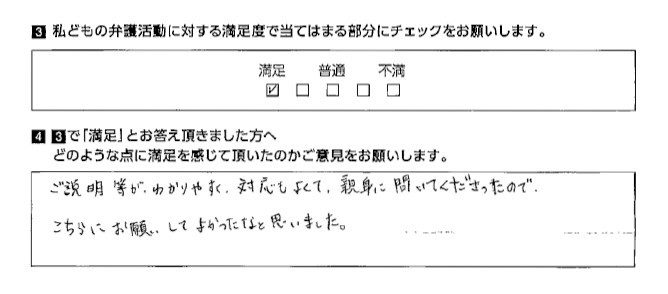 3 私どもの弁護活動に対する満足度で当てはまる部分にチェックをお願いします。
満足 普通 不満
☑ □ □ □ □
4 3で「満足」とお答え頂きました方へ
どのような点に満足を感じて頂いたのかご意見をお願いします。
ご説明等が、わかりやすく、対応もよくて、親身に聞いてくださったので、
こちらにお願いしてよかったなと思いました。